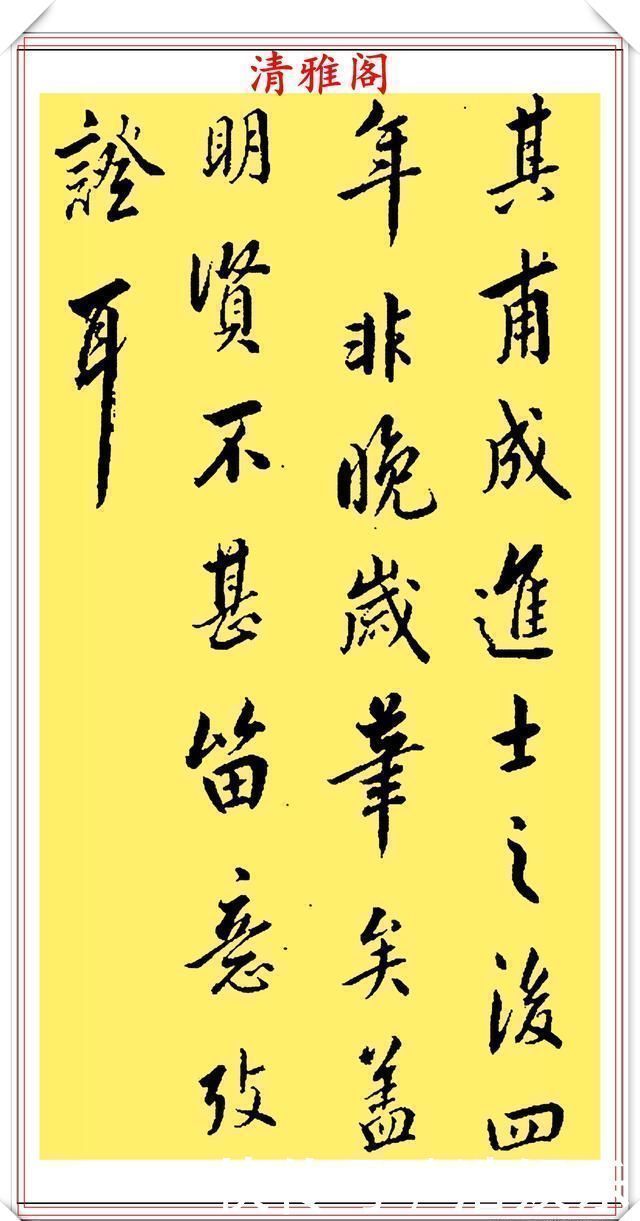 清雅阁
其甫成進士之後四
年非晚歲筆矣蓋
明賢不甚留意攷
證耳